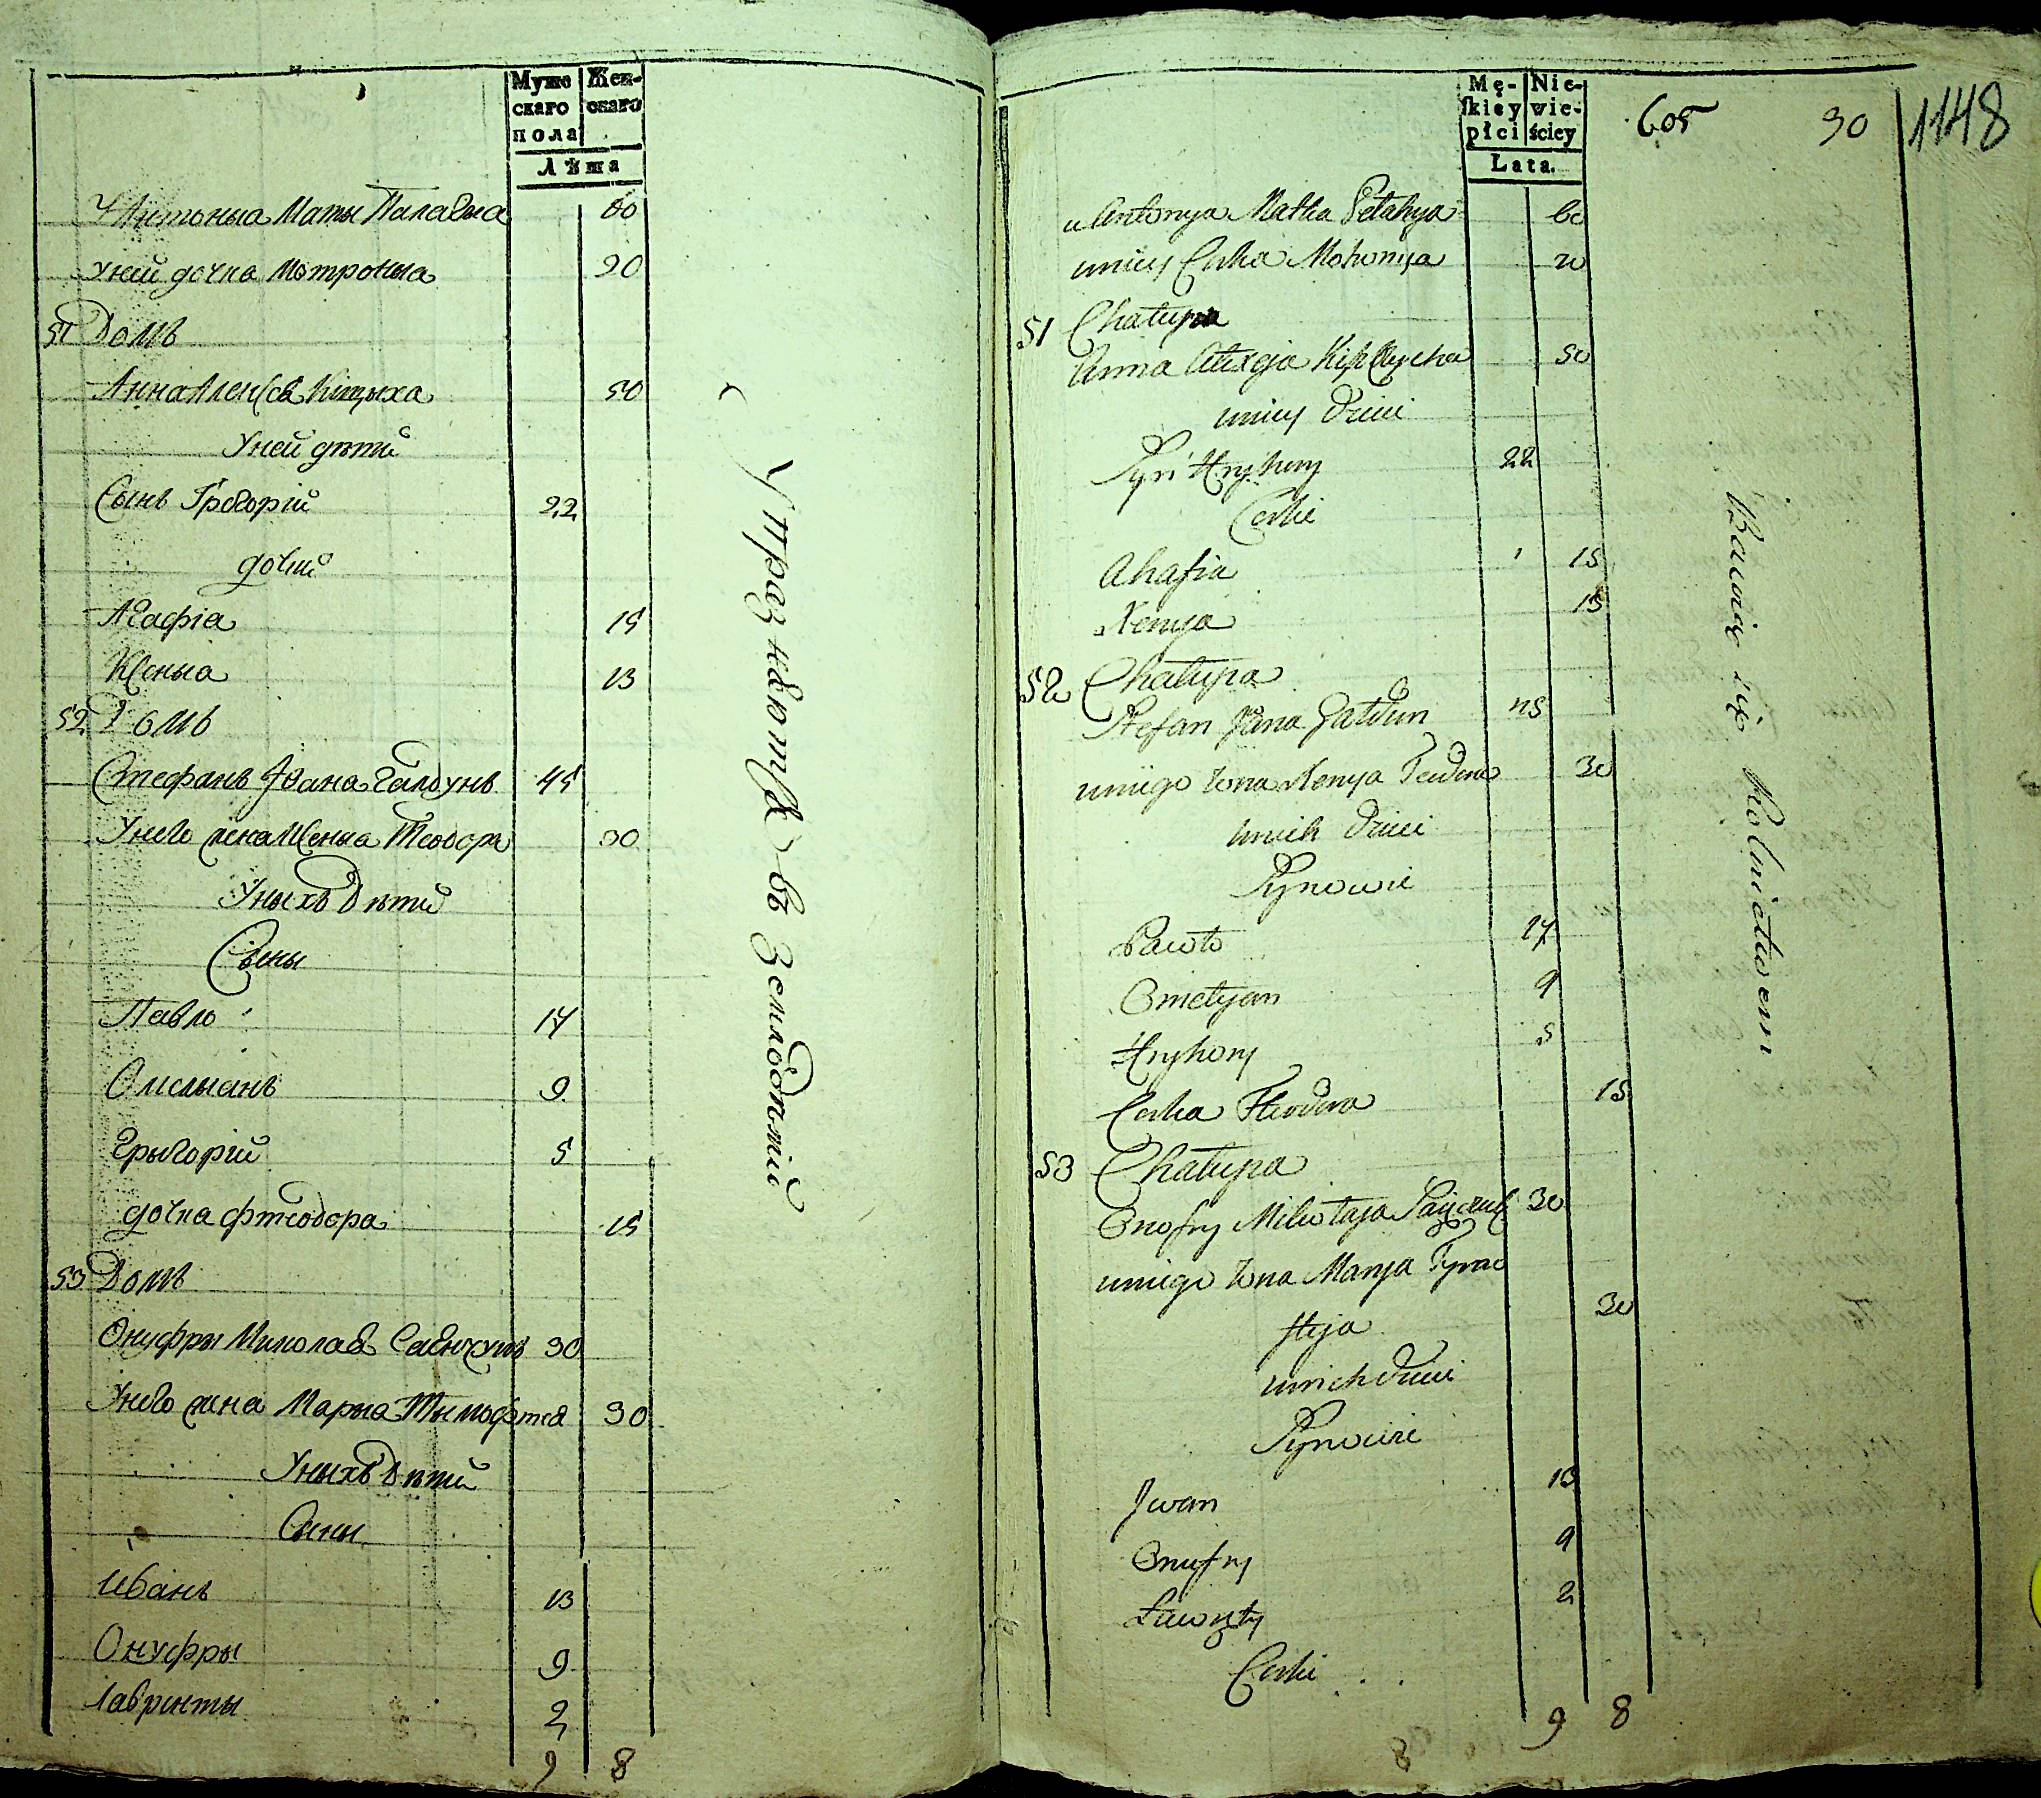 Мужскаго пола
Женскаго
Лѣта
У Антоныа Маты Палагыа 60
Уней дочка Мотроныа 20
51 Домъ
Анна Алексѣя 50
Уней дѣтий
Сынъ Грегорій 22
дочки
Агафіа 15
Ксеныа 13
52 Домъ
Стефанъ Ивана Галдунъ 45
Унего жена Ксеныа Теодора 30
Уныхъ дѣтий
Сыны
Павло 17
Омелыанъ 9
Грыгорій 5
дочка Фтеодора 15
53 Домъ
Онуфры Миколаѣ 30
Унего жена Марыа 30
Уныхъ дѣтий
Сыны
Иванъ 13
Онуфры 9
Лавренты 2
9 8
Упражнѣютца въ
Mę-skiey płci
Nie-wieściey
Lata.
605 30 1148
u Antonya Matka Pelahya 60
uniey Corka Motronya 20
51 Chałupa
Anna Alexeja 50
uniey dzieci
Syn Hryhory 22
Corki
Ahafia 15
Xenya 13
52 Chałupa
Stefan Jwana Gałdun 45
uniego żona Xenya Teodora 30
unich dzieci
Synowie
Pawło 17
Omelyan 9
Hryhory 5
Corka Fteodora 15
53 Chałupa
Onofry Mikołaja 30
uniego żona Marya Tymo
fteja 30
unich dzieci
Synowie
Jwan 13
Onufry 9
Ławręty 2
Corki
9 8
8
Bawią się Rolnictwem